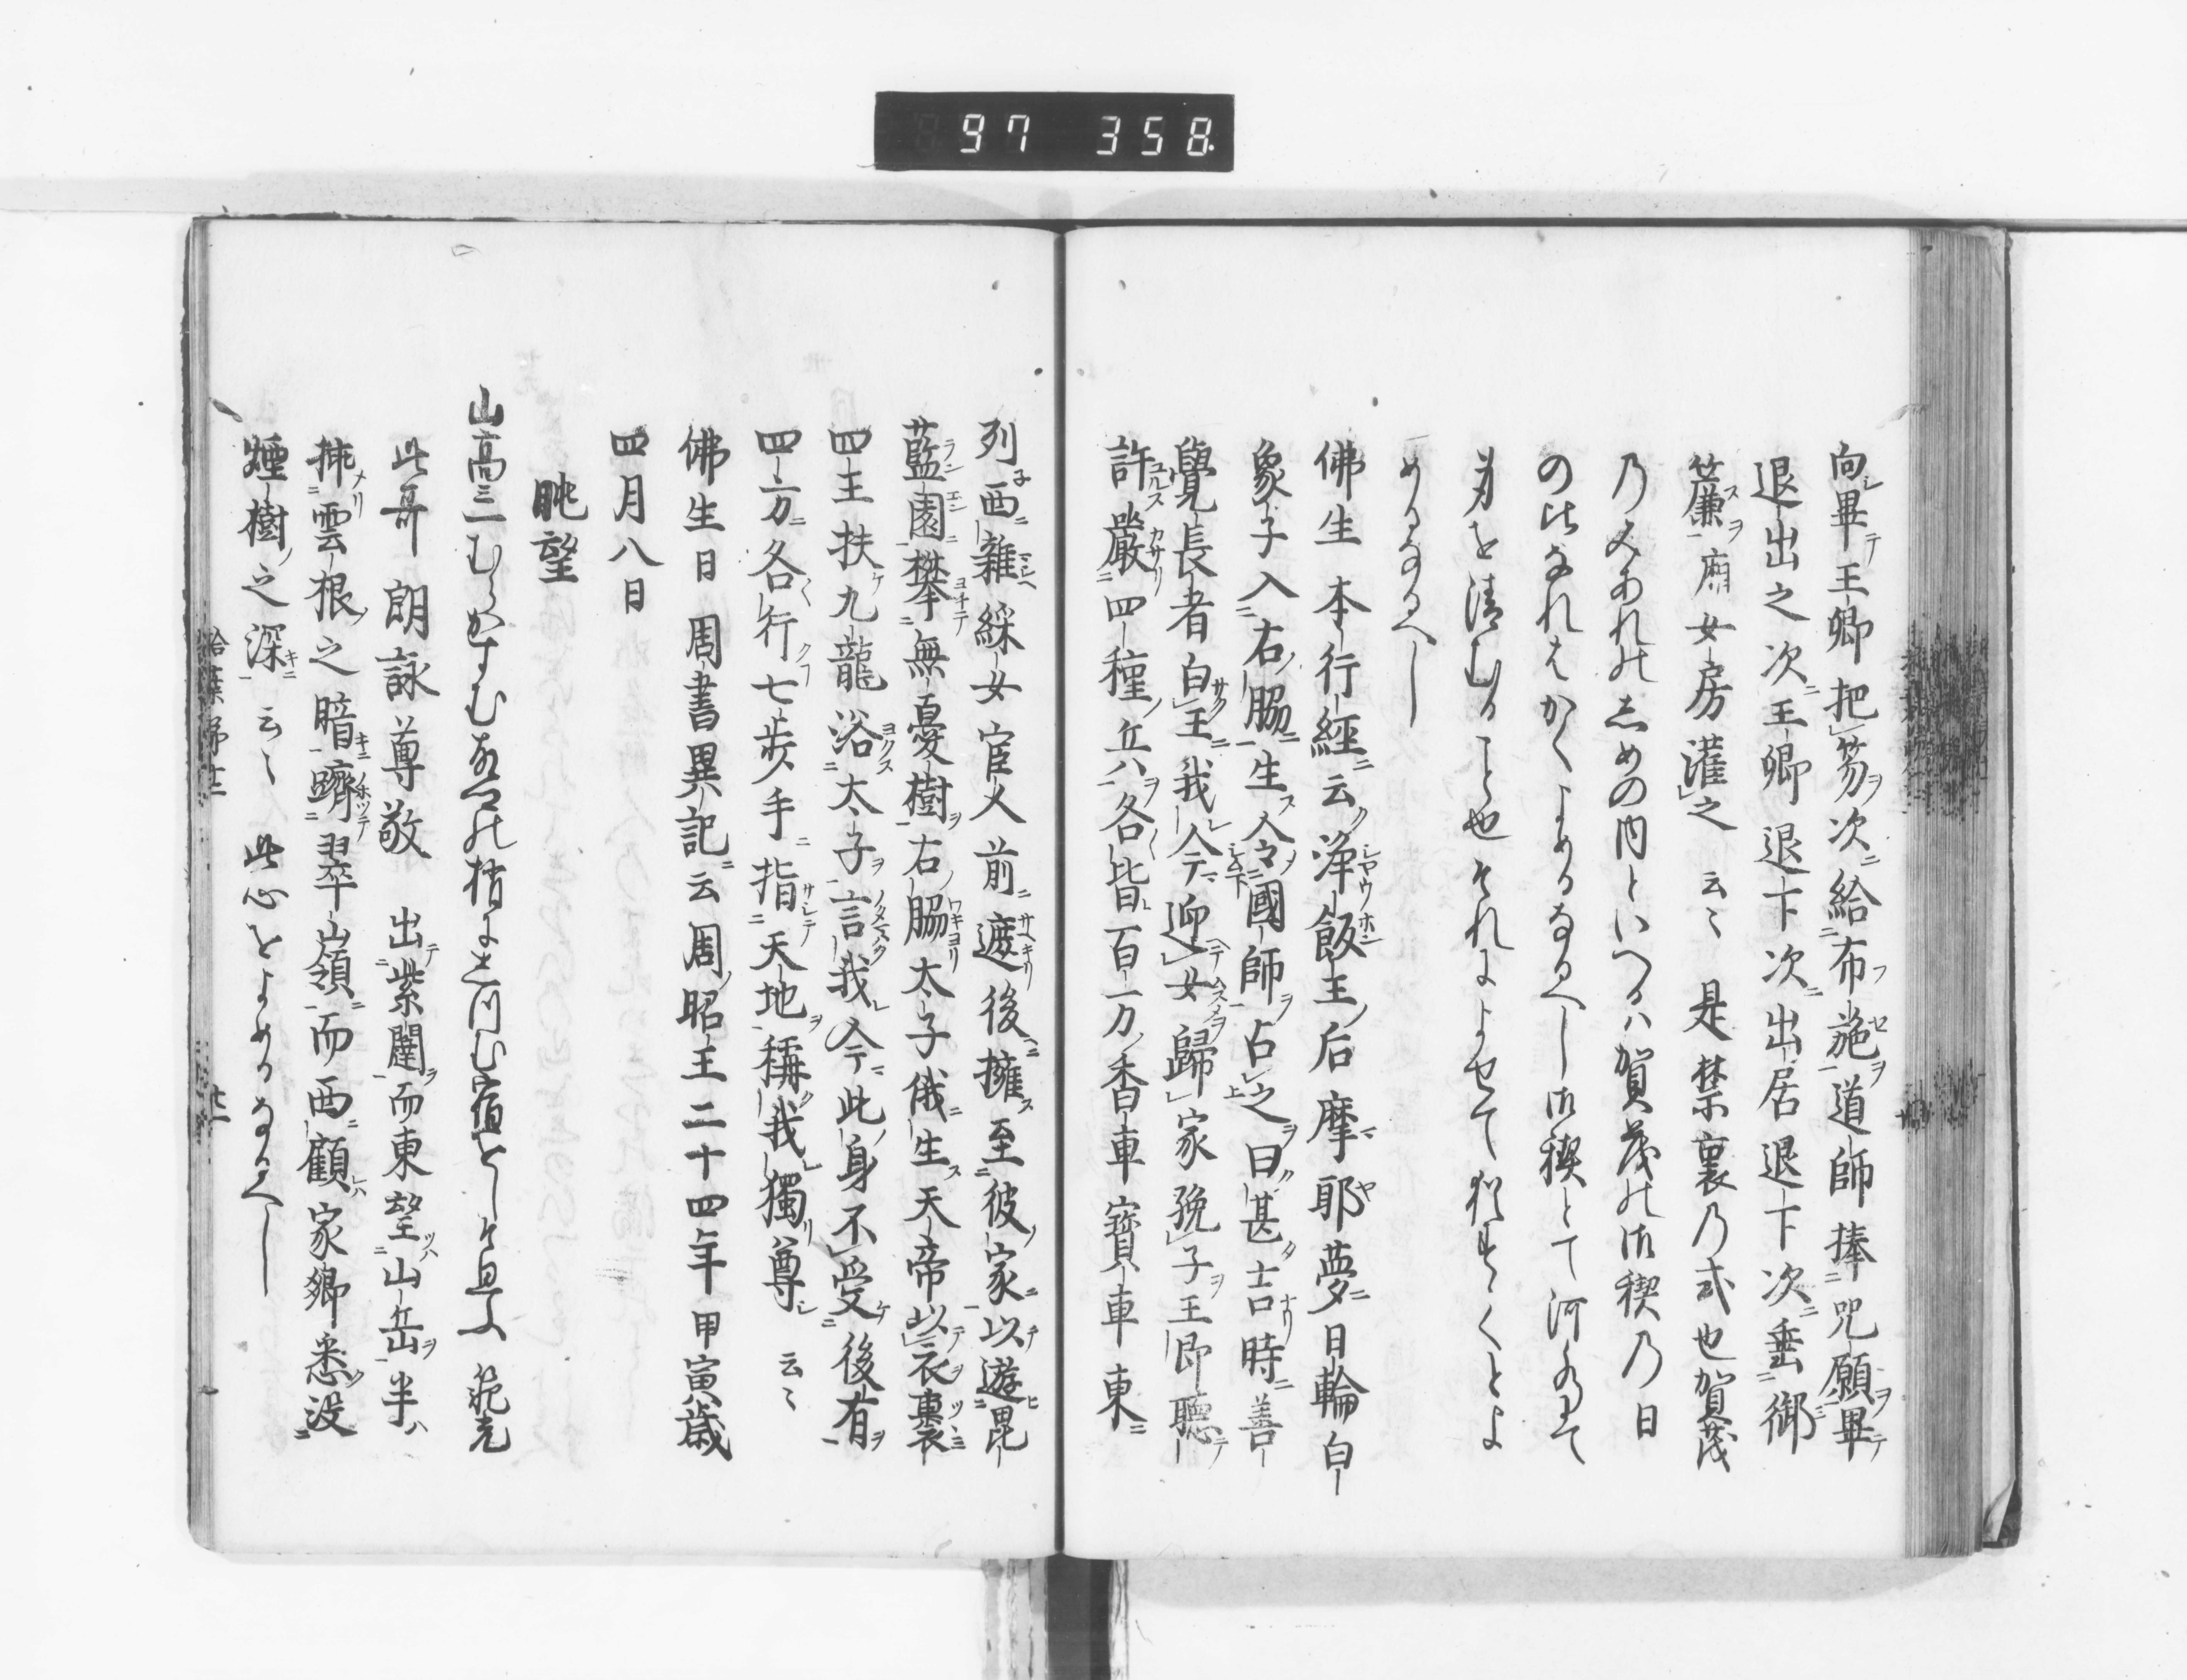 97 358
向畢王卿把笏次給布施道師捧咒願畢
退出之次王卿退下次出居退下次垂御
簾廂女房灌之云々 是禁裏乃式也賀茂
乃みあれのしめの内といへるハ賀茂の御禊乃日
の比なれはかくよめるなるへし御禊とて河にて
身を清むること也それによせて
めるなるへし
佛生 本行經云浄飯王后摩耶夢日輪白
象子入右脇生令國師占之曰甚吉時善
覺長者白王我今迎女歸家挽子王即聽
許嚴四種兵八各皆百一万香車寶車東
列西雜綵女宦人前遮後擁至彼家以遊毘
藍園攀無憂樹右脇太子俄生天帝以衣裹
四王扶九龍浴太子言我今此身不受後有
四方各行七歩手指天地稱我獨尊云々
佛生日 周書異記云周昭王二十四年甲寅歳
四月八日
眺望
山高三むらかすむ
此哥 朗詠尊敬 出紫闥而東望山岳半
挿雲根之暗躋翠嶺而西顧家郷悉没
煙樹之深云々 此心をよめるなるへし
拾葉第廿二